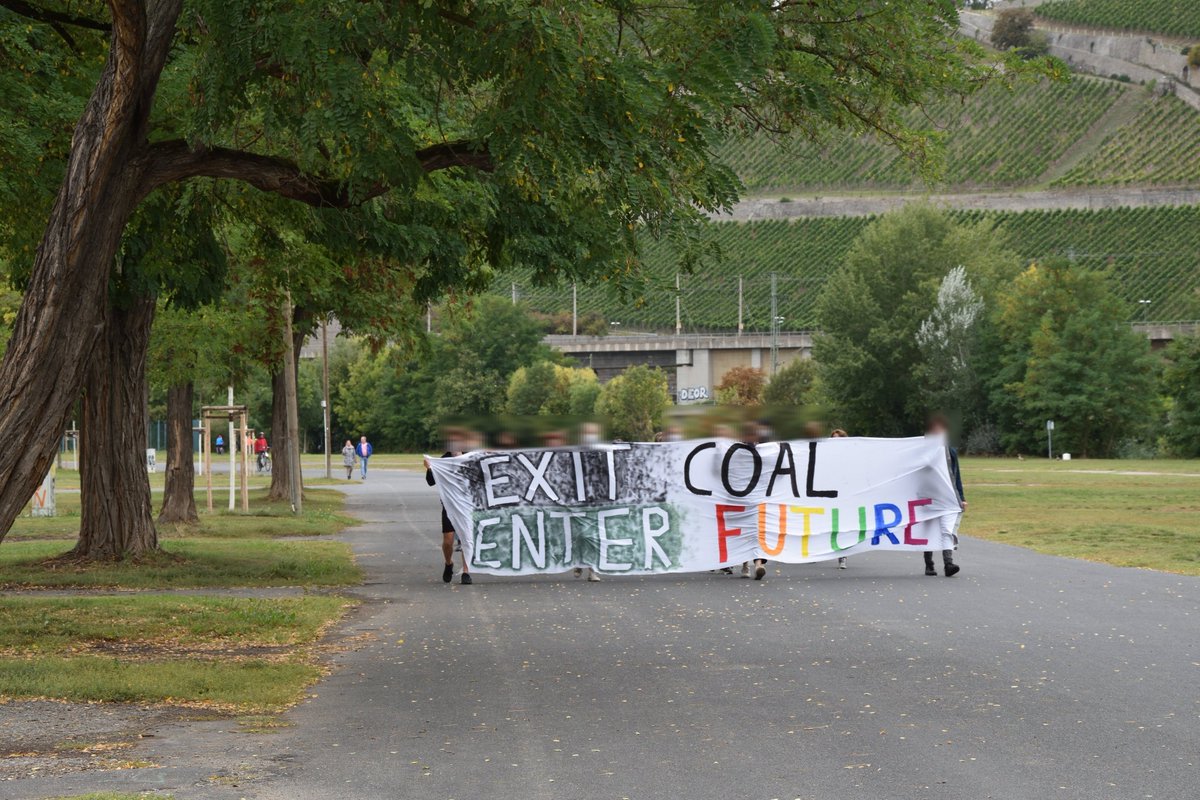 DEOR
EXIT COAL
ENTER FUTURE